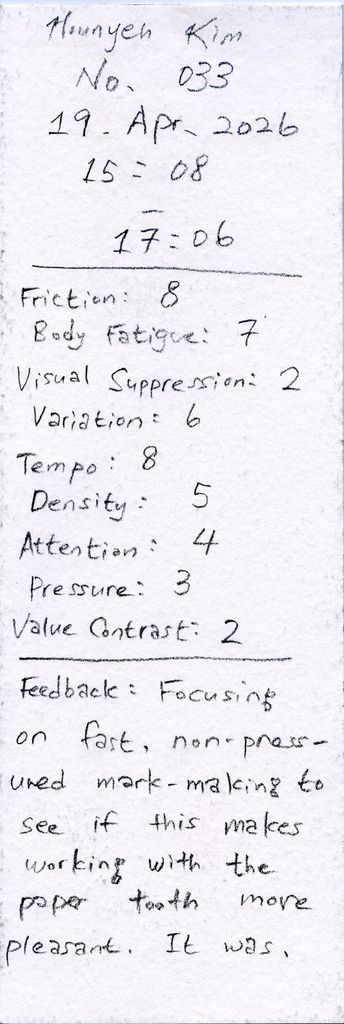 Hounyeh Kim
No. 033
19. Apr. 2026
15:08
–
17:06
Friction: 8
Body Fatigue: 7
Visual Suppression: 2
Variation: 6
Tempo: 8
Density: 5
Attention: 4
Pressure: 3
Value Contrast: 2
Feedback: Focusing
on fast, non-press-
ured mark-making to
see if this makes
working with the
paper tooth more
pleasant. It was.